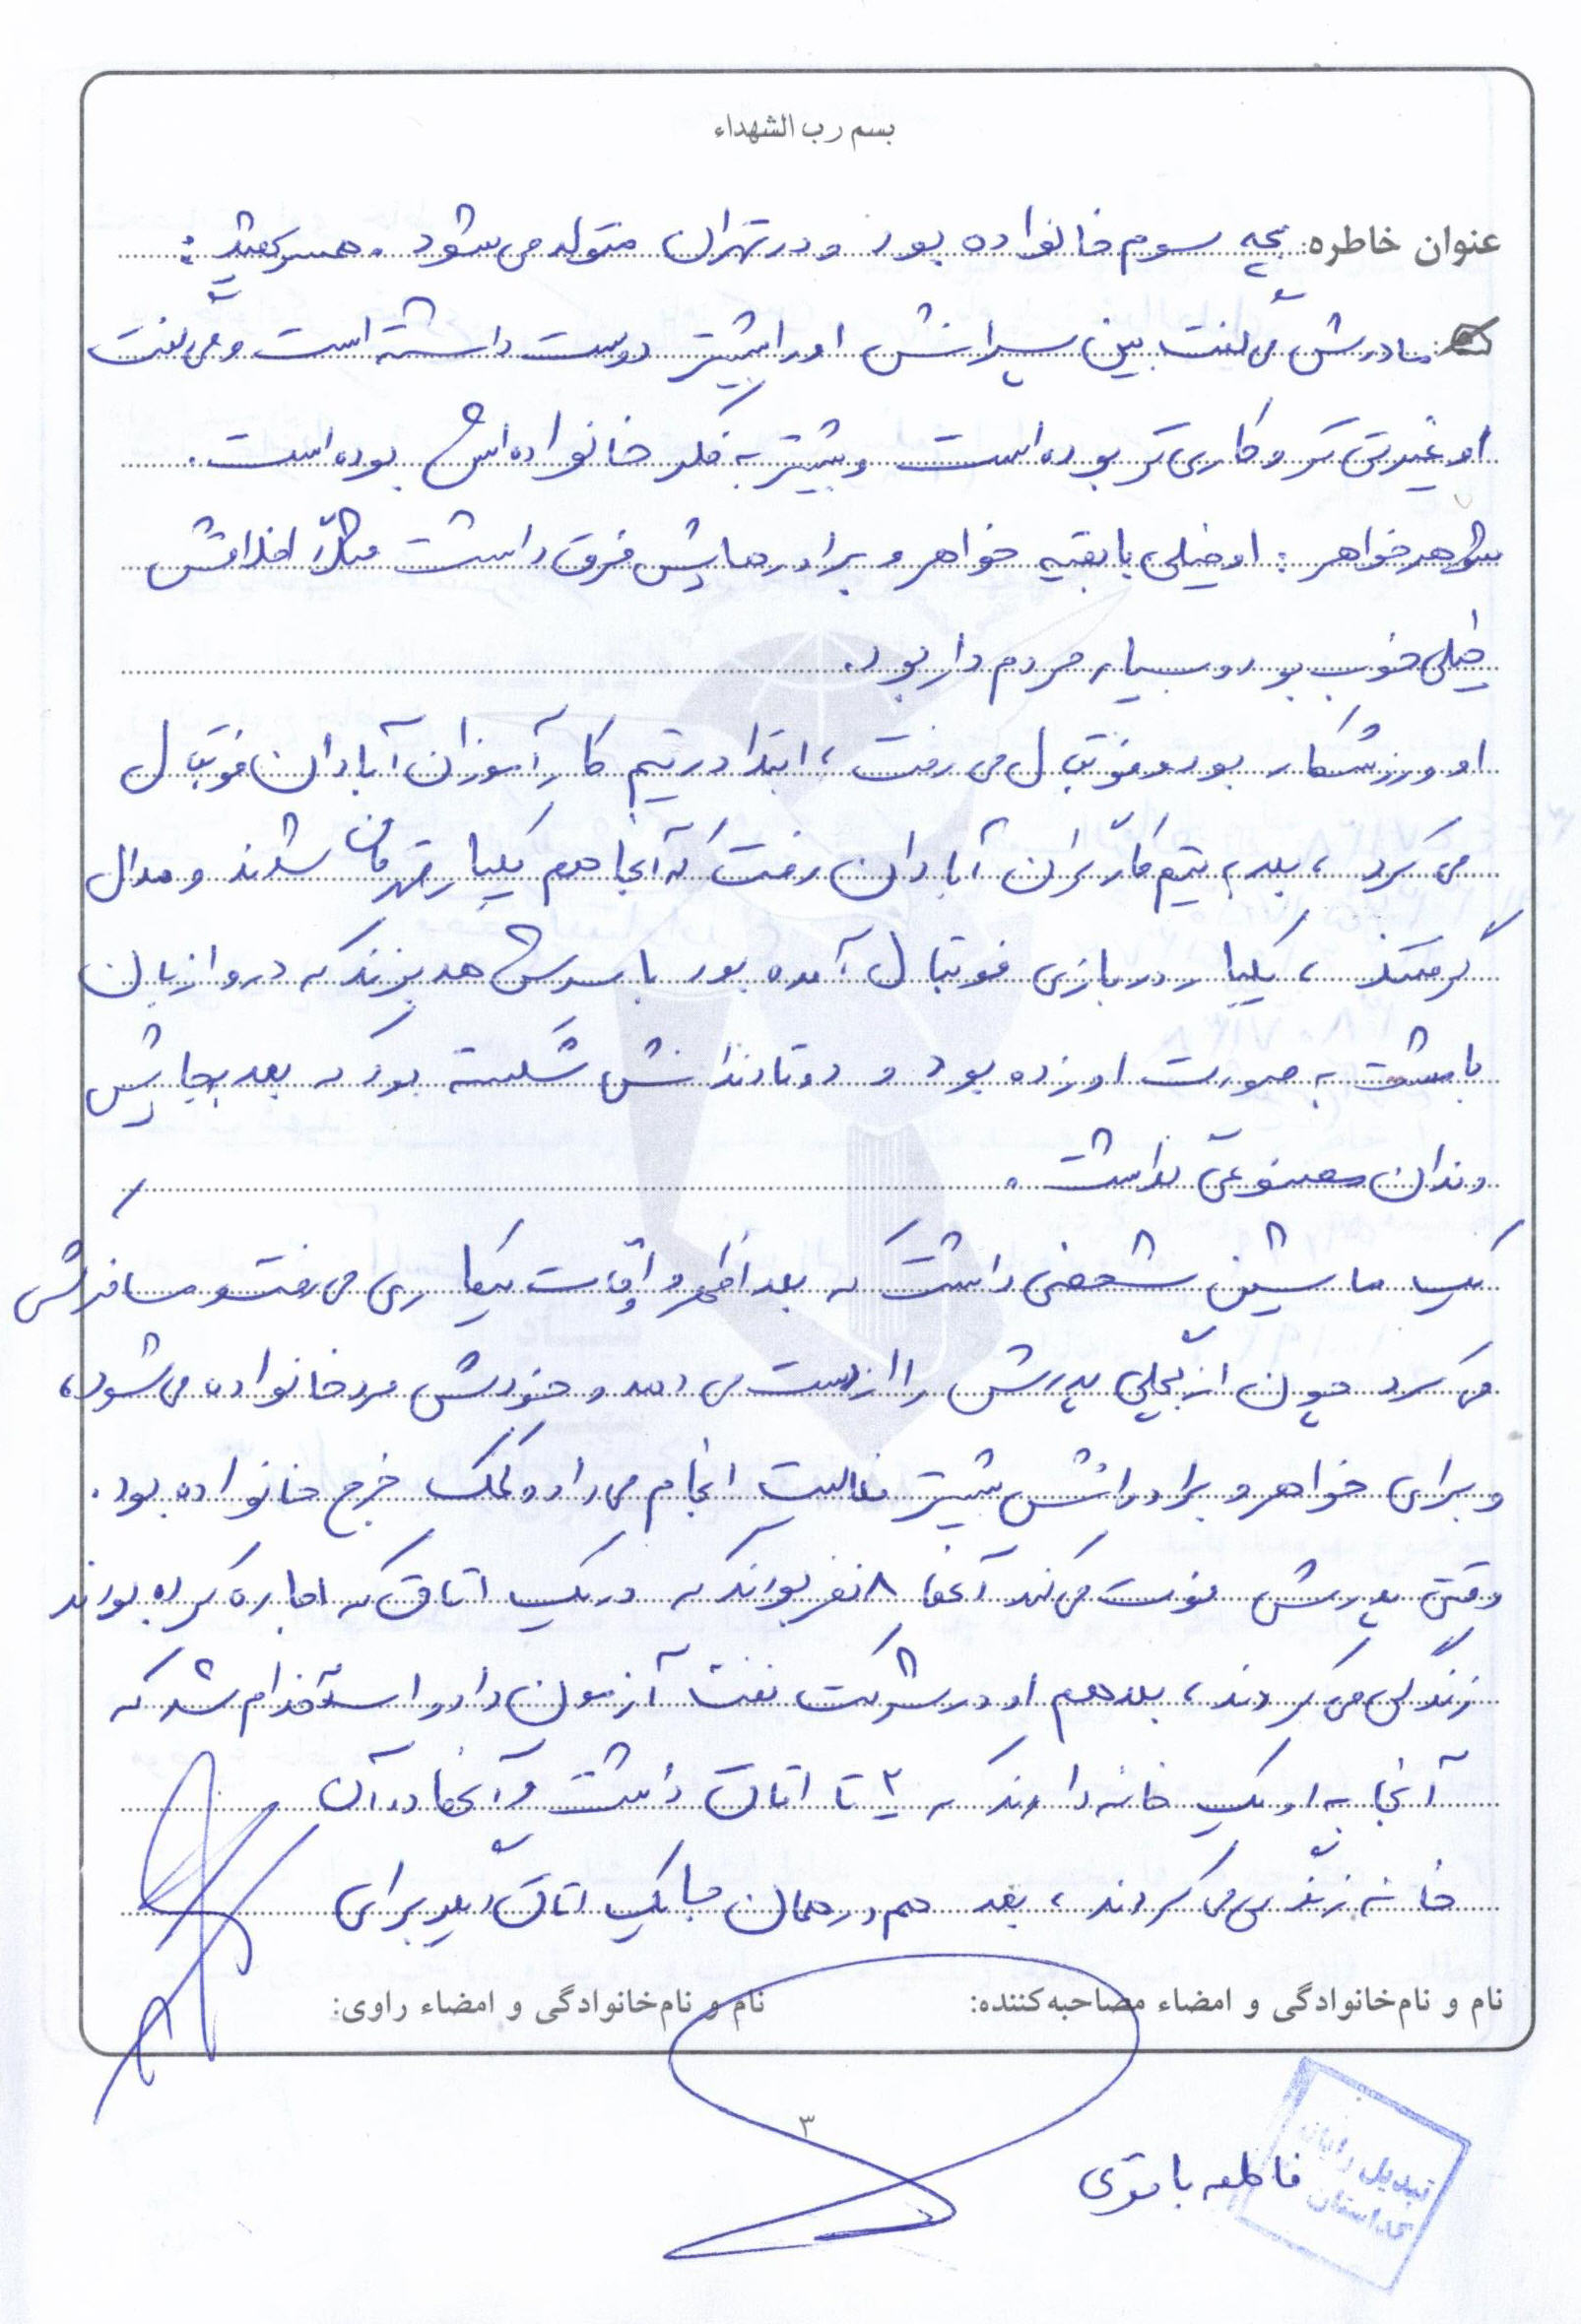 بسم رب الشهداء
عنوان خاطره: بچه سوم خانواده بود و در تهران متولد می شود. همسر شهید:
مادرش می گفت بین پسرانش او را بیشتر دوست داشته است و می گفت
او غیرتی تر و کاری تر بوده است و بیشتر به فکر خانواده اش بوده است.
شوهر خواهر: او خیلی با بقیه خواهر و برادرهایش فرق داشت مثلاً اخلاقش
خیلی خوب بود و بسیار مردم دار بود.
او ورزشکار بود و فوتبال می رفت، ابتدا در تیم کارآموزان آبادان فوتبال
می کرد، بعد به تیم کارگران آبادان رفت که آنجا هم یکبار قهرمان شدند و مدال
گرفتند، یکبار در بازی فوتبال آمده بود با سرش هد بزند که دروازبان
با مشت به صورت او زده بود و دو تا دندانش شکسته بود که بعد بجایش
دندان مصنوعی گذاشت.
یک ماشین شخصی داشت که بعد از ظهر و اوقات بیکاری می رفت و مسافرکشی
می کرد چون از بچگی پدرش را از دست می دهد و خودش مرد خانواده می شود،
و برای خواهر و برادرانش بیشتر فعالیت انجام می داد و کمک خرج خانواده بود.
وقتی پدرش فوت می کند آنها ۸ نفر بودند که در یک اتاق که اجاره کرده بودند
زندگی می کردند، بعد هم او در شرکت نفت آزمون داد و استخدام شد که
آنجا به او یک خانه دادند که ۳ تا اتاق داشت و آنها در آن
خانه زندگی می کردند، بعد هم در همان جا یک اتاق دیگر برای
نام و نام‌خانوادگی و امضاء مصاحبه‌کننده:
نام و نام‌خانوادگی و امضاء راوی:
۳
فاطمه یاقوتی
تبدیل